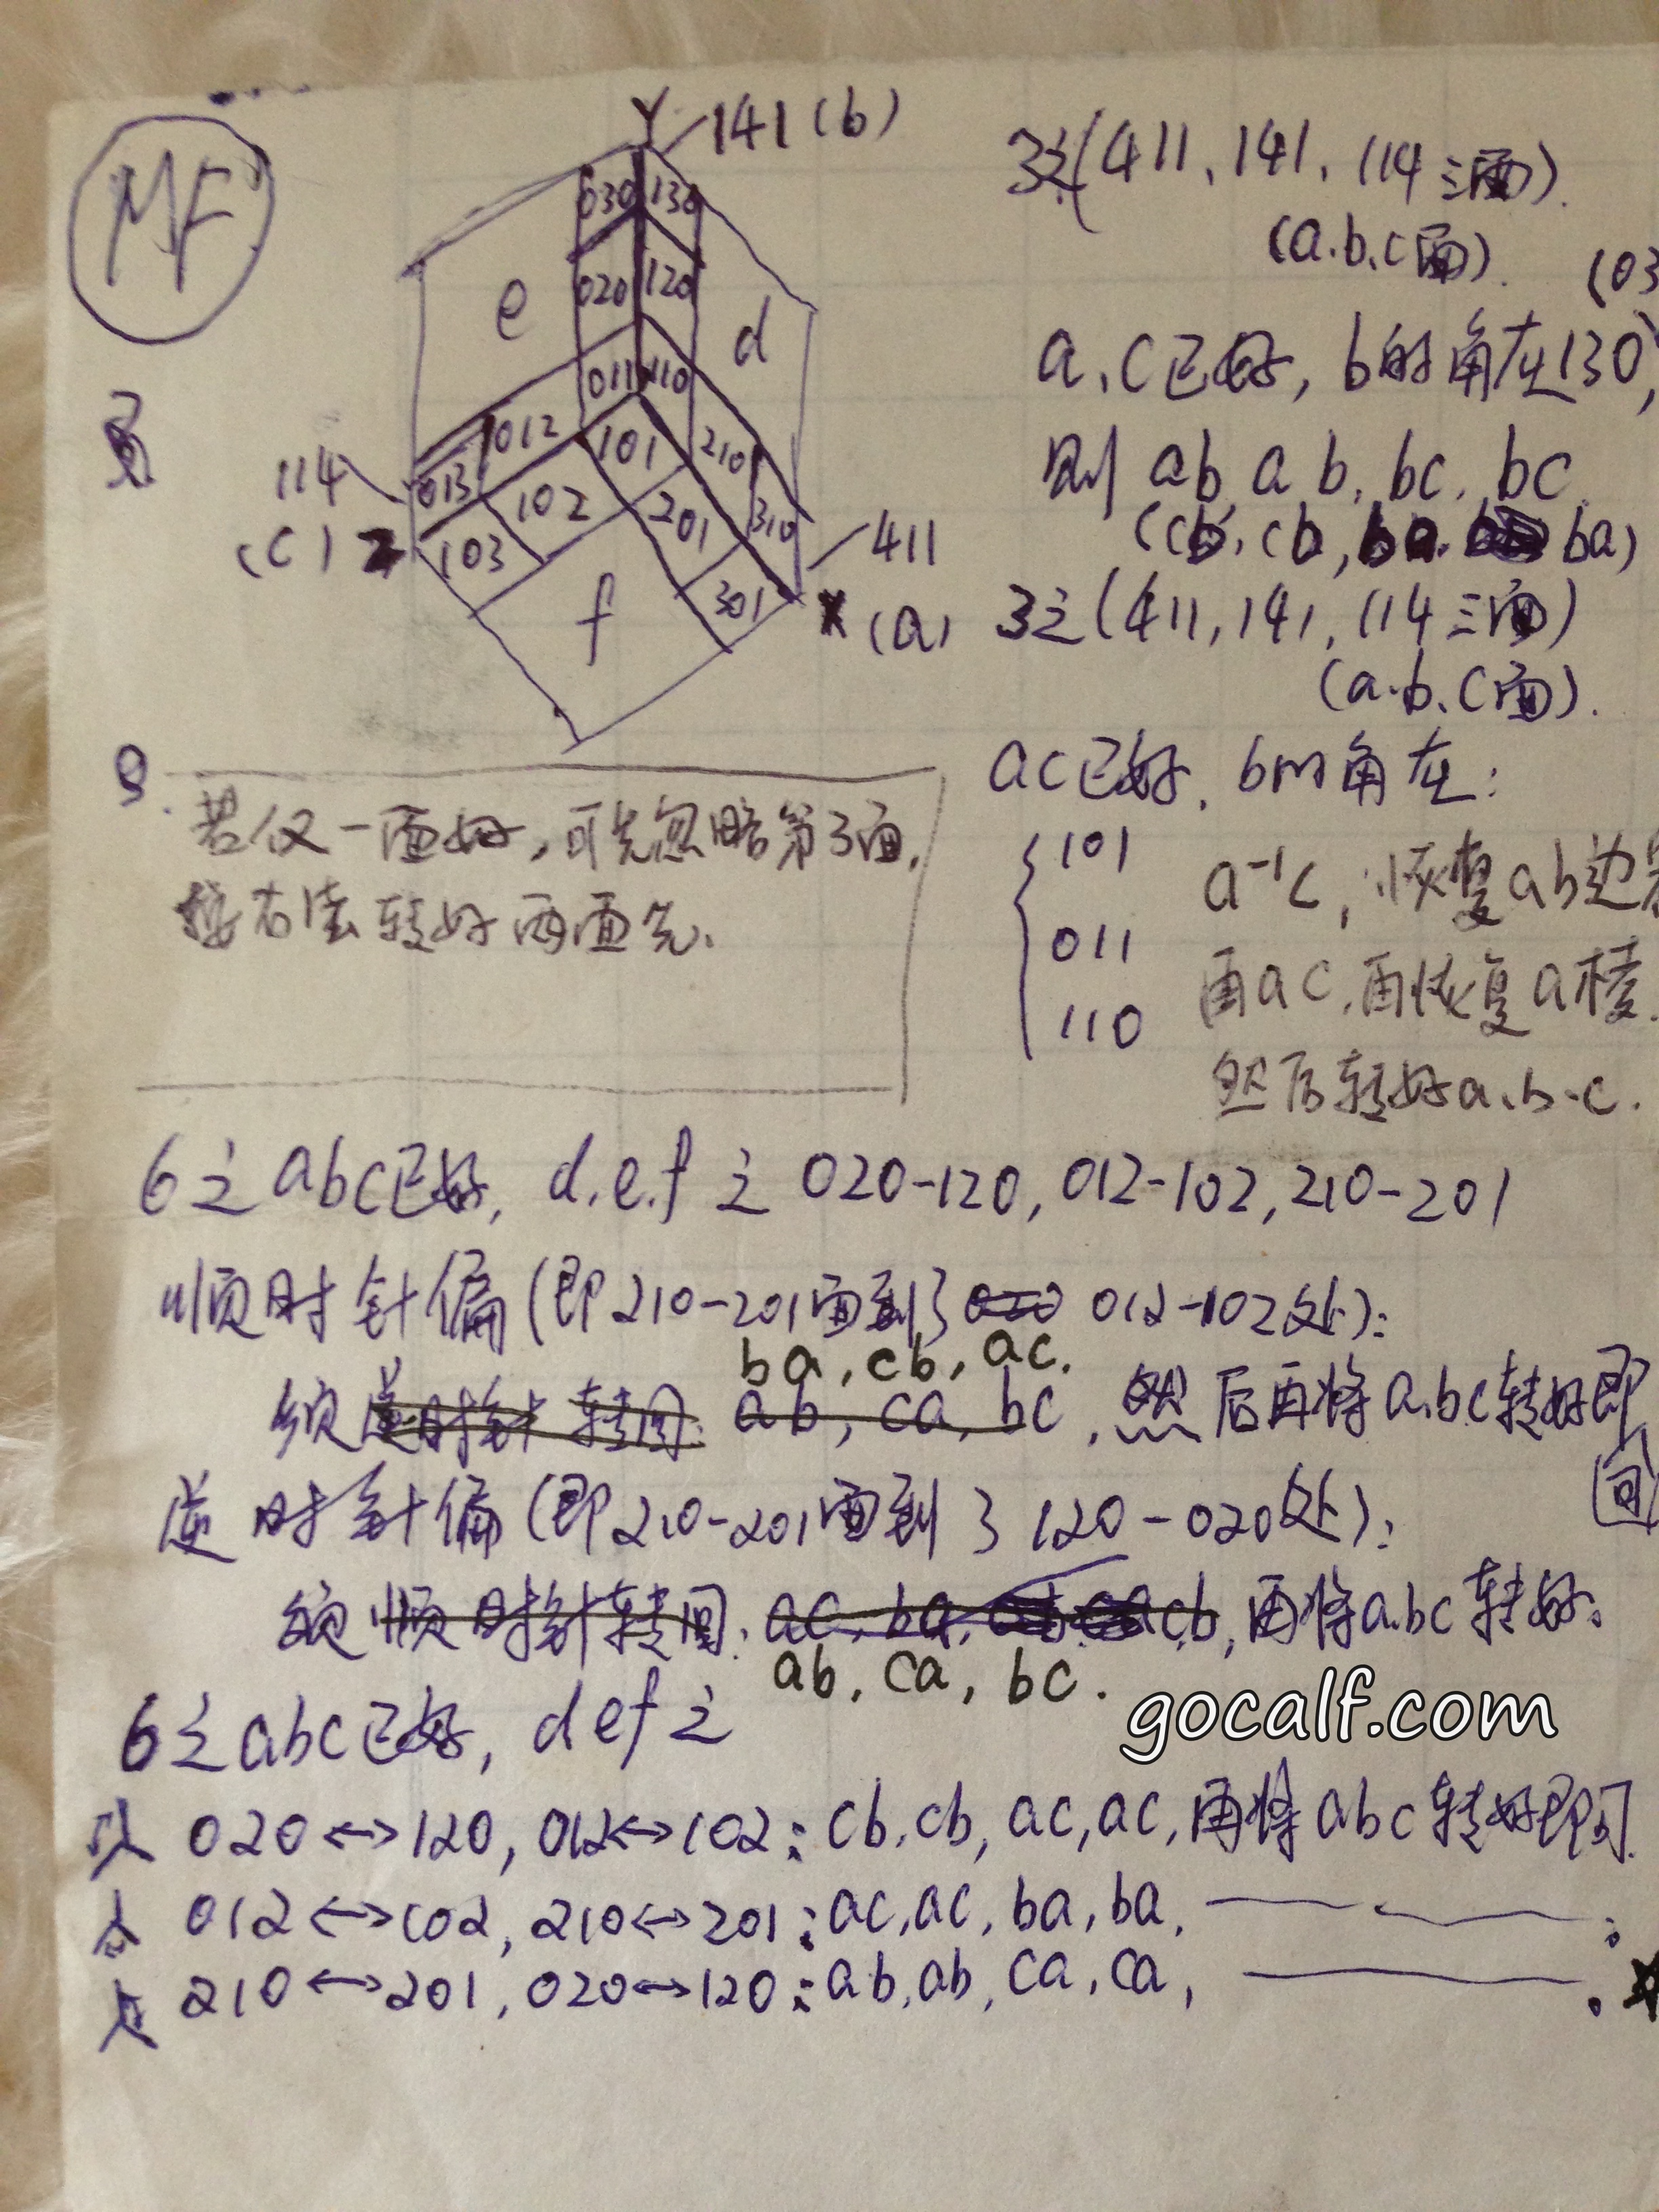 MF
Y
141(b)
030 130
020 120
e
d
011 110
012
101
210
114
013
102
201
310
(c)
103
301
411
f
x (a)
3之(411、141、114三面).
(a.b.c面).
(03
a、c已好, b的角在130,
则 ab, ab, bc, bc
(cb, cb, ba, ba)
3之(411, 141, 114三面)
(a.b.c面).
ac已好, b的角在:
101
011
110
a⁻¹c, 恢复ab边
再ac, 再恢复a棱.
然后转好a.b.c.
若仅一面好, 可先忽略第3面,
按右法转好两面先.
6之abc已好, d.e.f之020-120, 012-102, 210-201
顺时针偏(即210-201面到了 012-102处):
ba, cb, ac.
须逆时针转回: ab, ca, bc, 然后再将a.bc转好即
回
逆时针偏(即210-201面到了120-020处):
须顺时针转回: ac, ba, cb, 再将a.bc转好.
ab, ca, bc.
6之abc已好, def之
gocalf.com
020↔120, 012↔102: cb, cb, ac, ac, 再将abc转好即可.
012↔102, 210↔201: ac, ac, ba, ba,
210↔201, 020↔120: ab, ab, ca, ca,